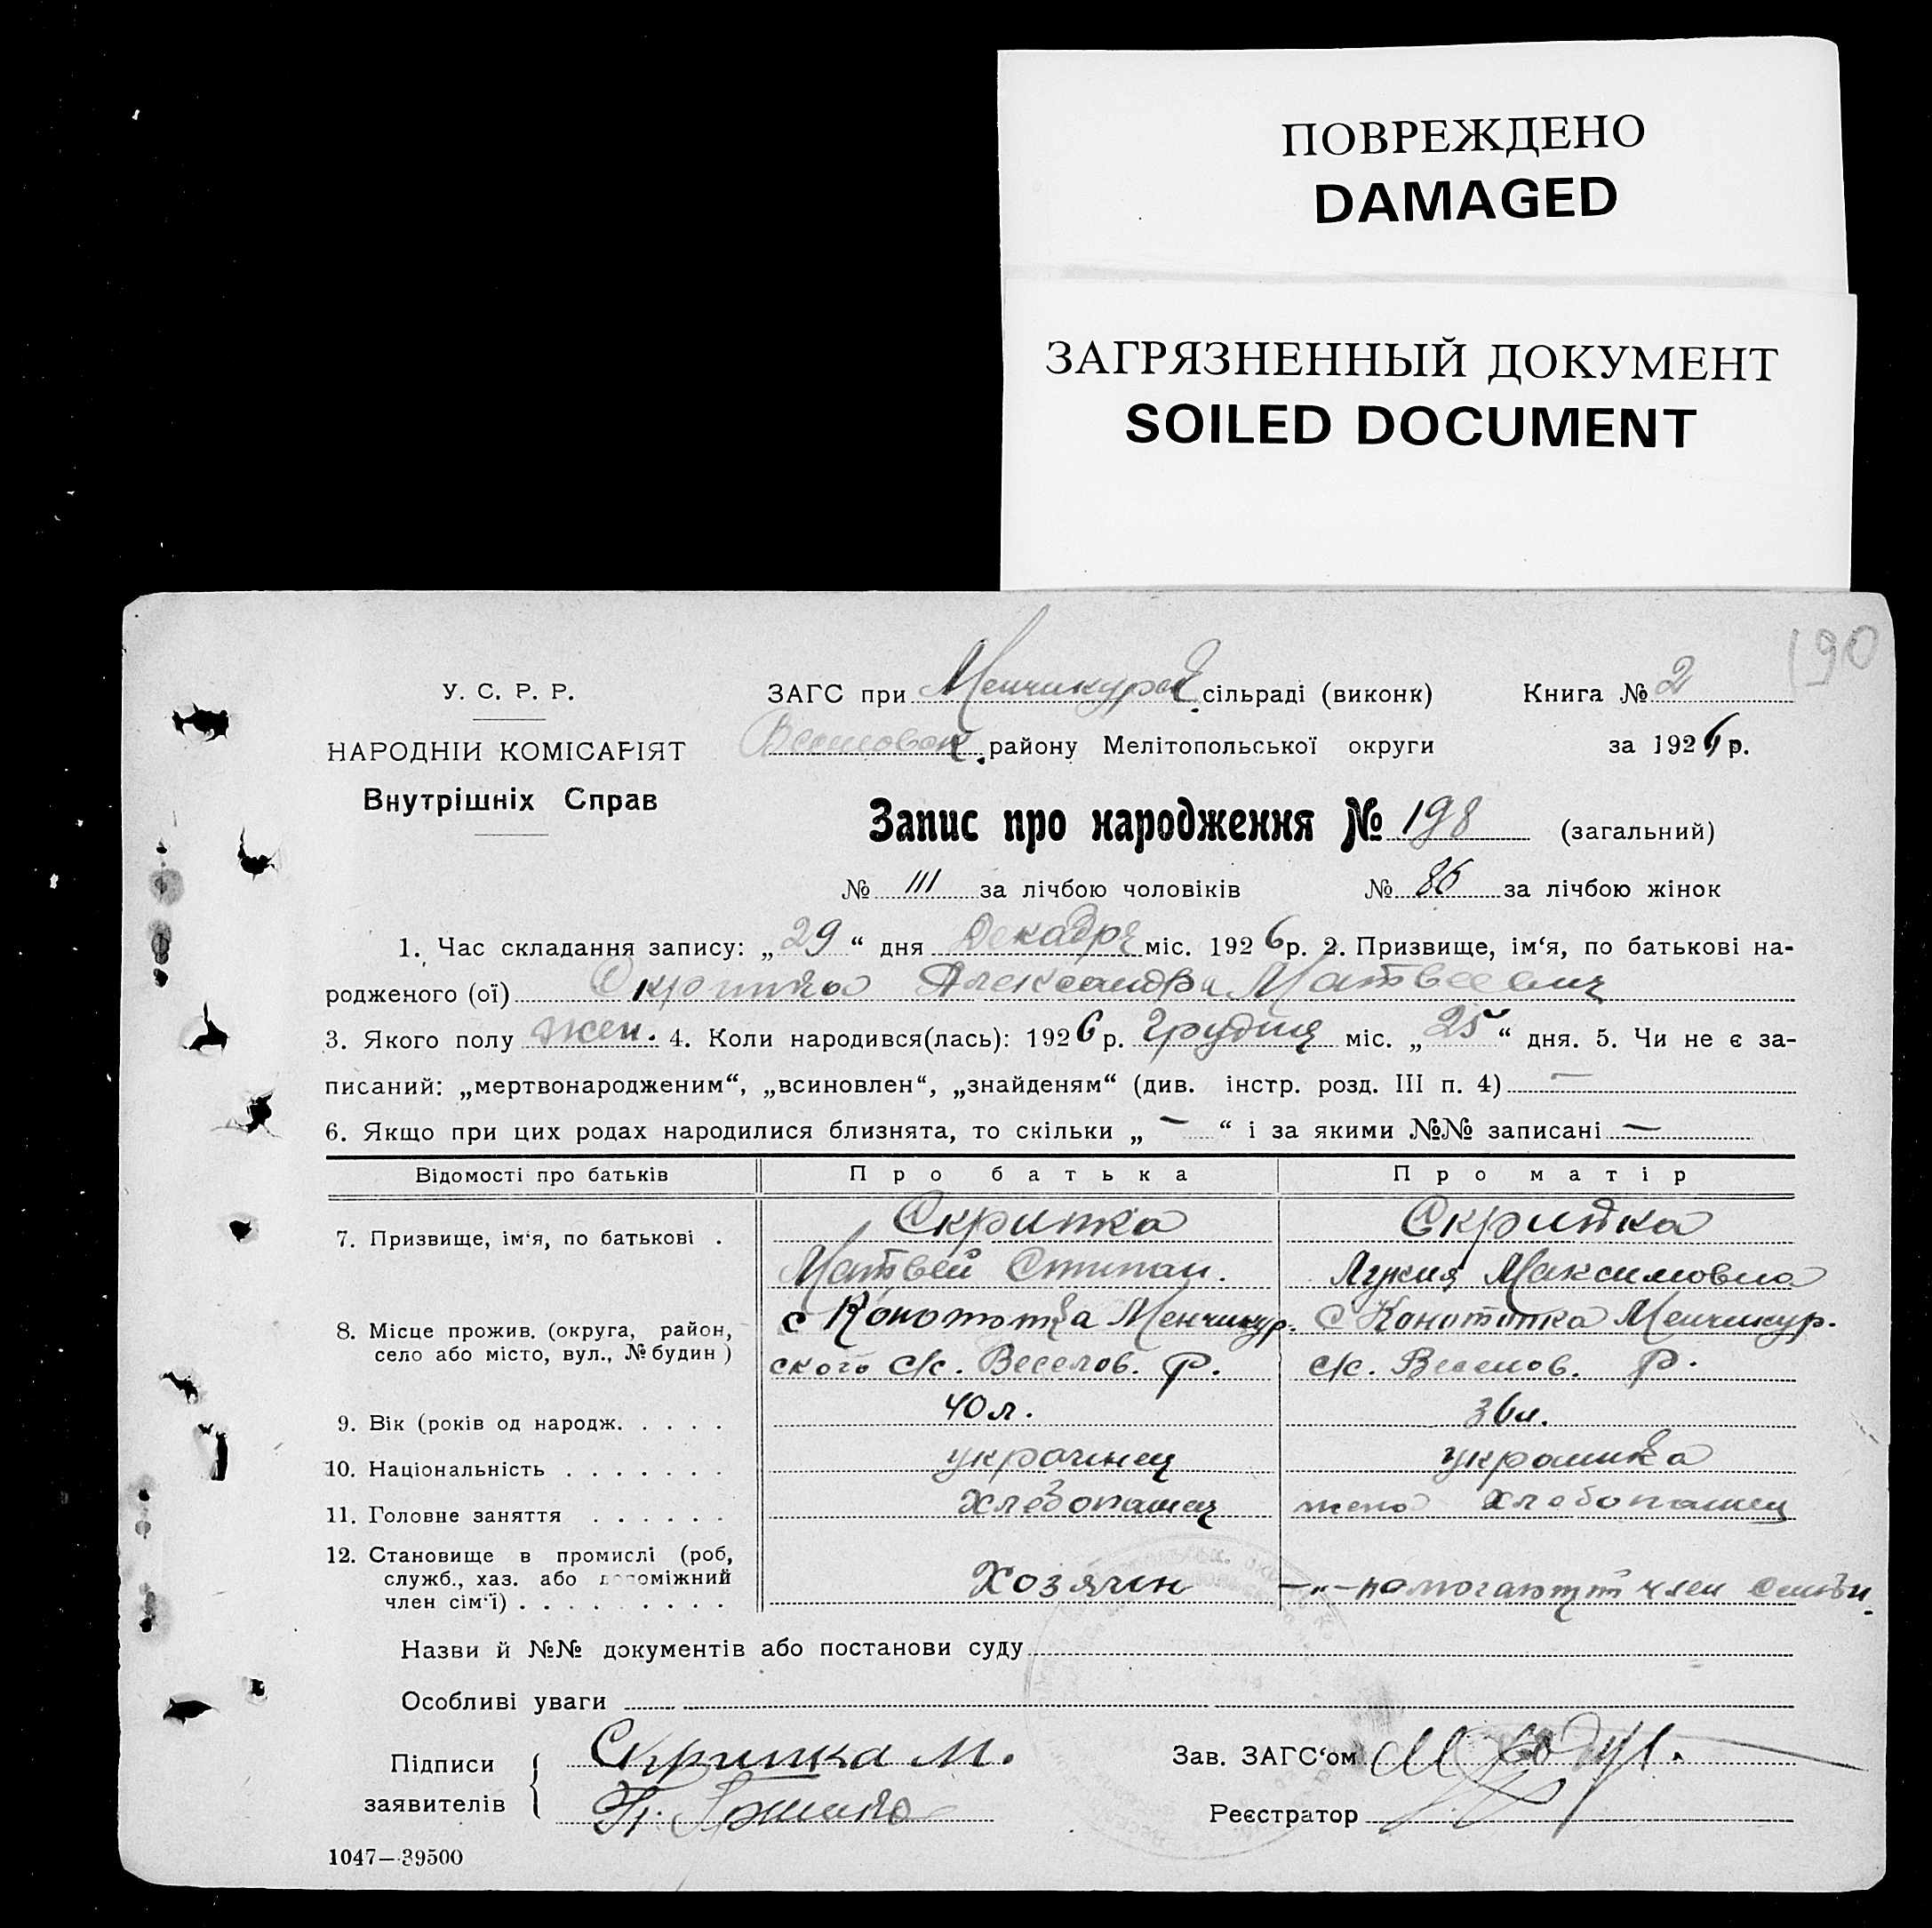 ПОВРЕЖДЕНО
DAMAGED
ЗАГРЯЗНЕННЫЙ ДОКУМЕНТ
SOILED DOCUMENT
190
У. С. Р. Р.
ЗАГС при Менчикурск. сільраді (виконк)
Книга № 2
НАРОДНІИ КОМІСАРІЯТ
Веселовск. району Мелітопольської округи
за 1926 р.
Внутрішніх Справ
Запис про народження № 198 (загальний)
№ 111 за лічбою чоловіків № 86 за лічбою жінок
1. Час складання запису: „29“ дня Декабря міс. 1926 р. 2. Призвище, ім‘я, по батькові на-
родженого (ої) Скрипка Александра Матвеевич
3. Якого полу жен. 4. Коли народився(лась): 1926 р. Грудня міс. „25“ дня. 5. Чи не є за-
писаний: „мертвонародженим“, „всиновлен“, „знайденям“ (див. інстр. розд. III п. 4) —
6. Якщо при цих родах народилися близнята, то скільки „ — “ і за якими №№ записані —
Відомості про батьків
Про батька
Про матір
7. Призвище, ім‘я, по батькові .
Скрипка
Матвей Стипан.
Скрипка
Лукия Максимовна
8. Місце прожив. (округа, район,
село або місто, вул., № будин )
с Конотопка Менчикур.
ского с/с. Веселов. р.
С Конотопка Менчикур.
с/с. Веселов. р.
9. Вік (років од народж. . . . .
40 л.
36 л.
10. Національність . . . . . . .
украинец
украинка
11. Головне заняття . . . . . .
Хлебопашец
жена Хлебопашец
12. Становище в промислі (роб,
служб., хаз. або допоміжний
член сім‘ї) . . . . . . . . .
Хозяин
—„— помогающ член семьи.
Назви й №№ документів або постанови суду
Особливі уваги
Підписи
заявителів
Скрипка М.
Зав. ЗАГС‘ом
Реєстратор
1047—39500